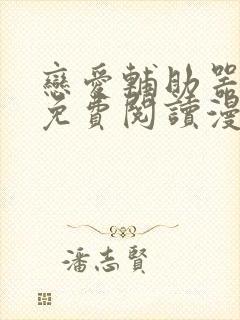 戀愛輔助器
免費閱讀漫
潘志賢